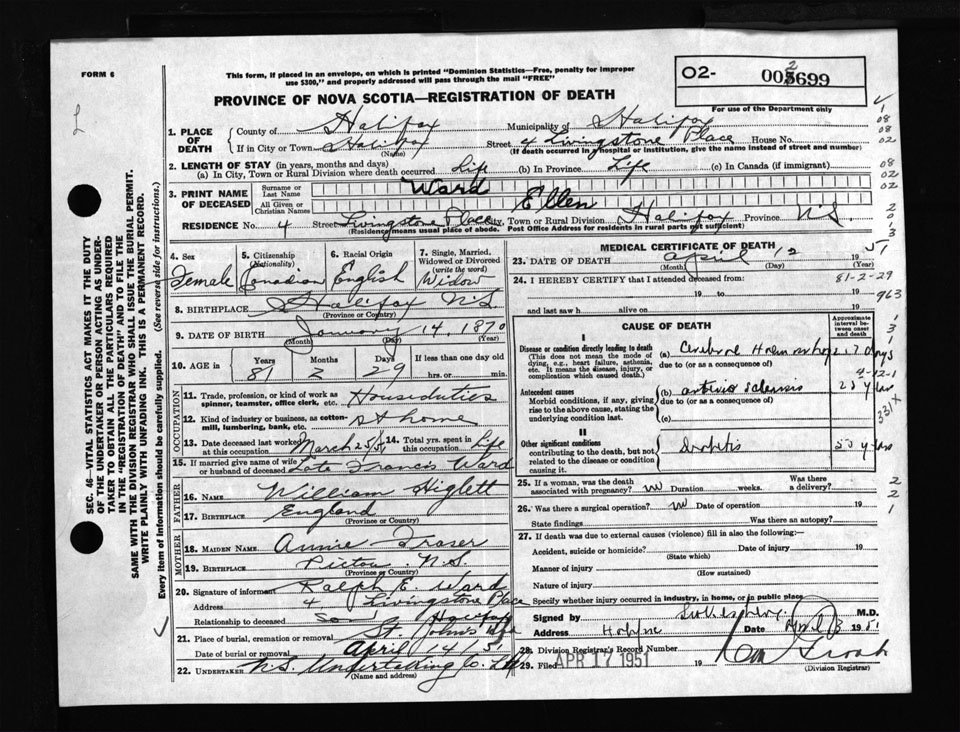 FORM 6
This form, if placed in an envelope, on which is printed "Dominion Statistics—Free, penalty for improper
use $300," and properly addressed will pass through the mail "FREE"
PROVINCE OF NOVA SCOTIA—REGISTRATION OF DEATH
02- 002699
For use of the Department only
1. PLACE OF DEATH County of Halifax Municipality of Halifax
If in City or Town Halifax (Name) Street 4 Livingstone Place House No.
(If death occurred in a hospital or institution, give the name instead of street and number)
2. LENGTH OF STAY (in years, months and days)
(a) In City, Town or Rural Division where death occurred Life (b) In Province Life (c) In Canada (if immigrant)
3. PRINT NAME OF DECEASED Surname or Last Name Ward
All Given or Christian Names Ellen
RESIDENCE No. 4 Street Livingstone Place City, Town or Rural Division Halifax Province N.S.
(Residence means usual place of abode. Post Office Address for residents in rural parts not sufficient)
4. Sex Female
5. Citizenship (Nationality) Canadian
6. Racial Origin English
7. Single, Married, Widowed or Divorced (write the word) Widow
8. BIRTHPLACE Halifax N.S.
(Province or Country)
9. DATE OF BIRTH January 14, 1870
(Month) (Day)
10. AGE Years 81 Months 2 Days 29 If less than one day old hrs. or min.
OCCUPATION
11. Trade, profession, or kind of work as spinner, teamster, office clerk, etc. Houseduties
12. Kind of industry or business, as cotton-mill, lumbering, bank, etc. at home
13. Date deceased last worked at this occupation March 25/51 14. Total yrs. spent in this occupation Life
15. If married give name of wife or husband of deceased Late Francis Ward
FATHER
16. NAME William Higlett
17. BIRTHPLACE England
(Province or Country)
MOTHER
18. MAIDEN NAME Annie Fraser
19. BIRTHPLACE Pictou N.S.
(Province or Country)
20. Signature of informant Ralph E. Ward
Address 4 Livingstone Place
Relationship to deceased Son Halifax
21. Place of burial, cremation or removal St. John's
Date of burial or removal April 14/51
22. UNDERTAKER N.S. Undertaking Co. Ltd
(Name and address)
MEDICAL CERTIFICATE OF DEATH
23. DATE OF DEATH April 12 51
(Month) (Day) (Year)
24. I HEREBY CERTIFY that I attended deceased from:
81-2-29
19 to 19
and last saw h alive on 19
963
CAUSE OF DEATH
Approximate interval between onset and death
I
Disease or condition directly leading to death
(This does not mean the mode of dying, e.g., heart failure, asthenia, etc. It means the disease, injury, or complication which caused death.)
(a) Cerebral
due to (or as a consequence of)
4-12-1
Antecedent causes
Morbid conditions, if any, giving rise to the above cause, stating the underlying condition last.
(b)
due to (or as a consequence of)
(c)
331X
II
Other significant conditions contributing to the death, but not related to the disease or condition causing it.
25. If a woman, was the death associated with pregnancy? Duration weeks. Was there a delivery?
26. Was there a surgical operation? Date of operation 19
State findings Was there an autopsy?
27. If death was due to external causes (violence) fill in also the following:—
Accident, suicide or homicide? Date of injury 19
(State which)
Manner of injury
(How sustained)
Nature of injury
Specify whether injury occurred in industry, in home, or in public place
Signed by M.D.
Address Date April 1951
28. Division Registrar's Record Number
29. Filed APR 17 1951 19
(Division Registrar)
SEC. 46—VITAL STATISTICS ACT MAKES IT THE DUTY
OF THE UNDERTAKER OR PERSON ACTING AS UNDERTAKER TO OBTAIN ALL THE PARTICULARS REQUIRED
IN THE "REGISTRATION OF DEATH" AND TO FILE THE
SAME WITH THE DIVISION REGISTRAR WHO SHALL ISSUE THE BURIAL PERMIT.
WRITE PLAINLY WITH UNFADING INK. THIS IS A PERMANENT RECORD.
Every item of information should be carefully supplied. (See reverse side for instructions.)